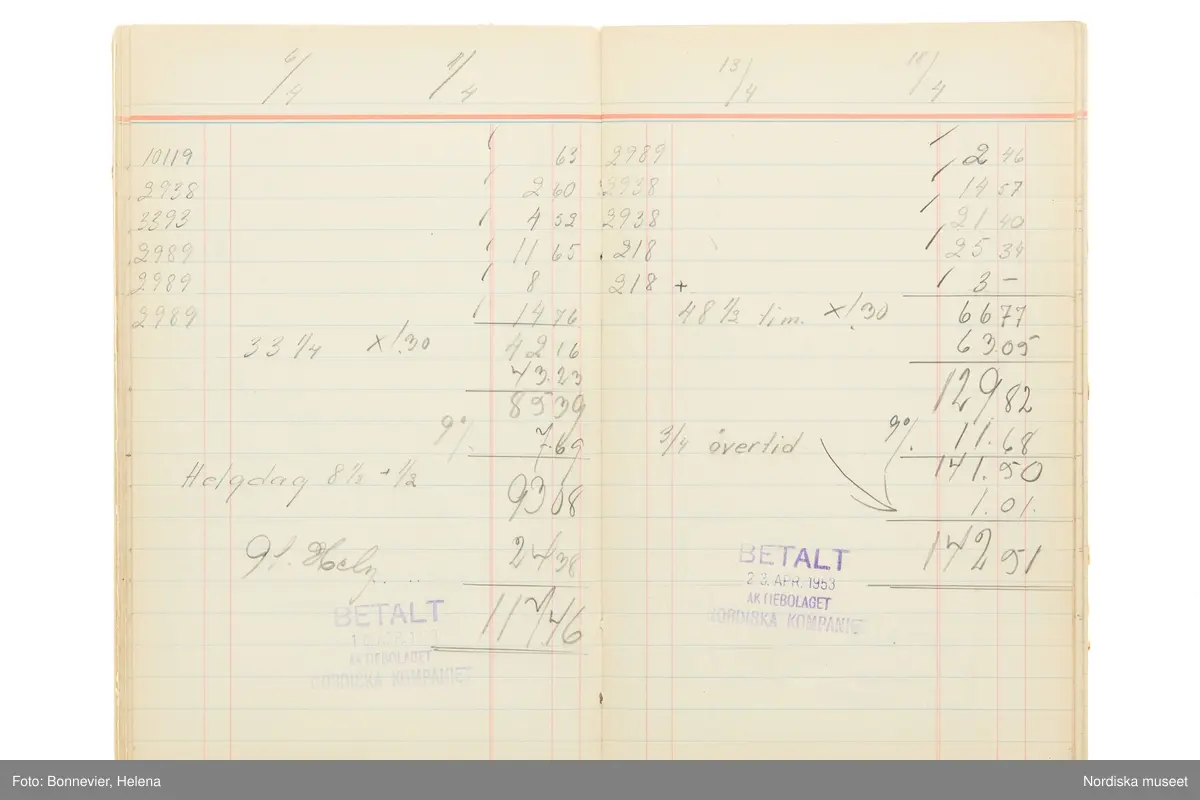 6/4 11/4
10119 63
2938 2 60
3393 4 52
2989 11 65
2989 8
2989 14 76
33 1/4 x 1.30 42 16
43.23
85 39
9% 7.69
Helgdag 8 1/2 + 1/2 93 08
24 38
117.46
BETALT
APR.
AKTIEBOLAGET
NORDISKA KOMPANIET
13/4 18/4
2989 2 46
2938 14 57
2938 21 40
218 25 34
218 + 3 –
48 1/2 tim. x 1.30 66 77
63.05
129 82
3/4 övertid 9% 11.68
141.50
1.01.
142 51
BETALT
23. APR. 1953
AKTIEBOLAGET
NORDISKA KOMPANIET
Foto: Bonnevier, Helena
Nordiska museet